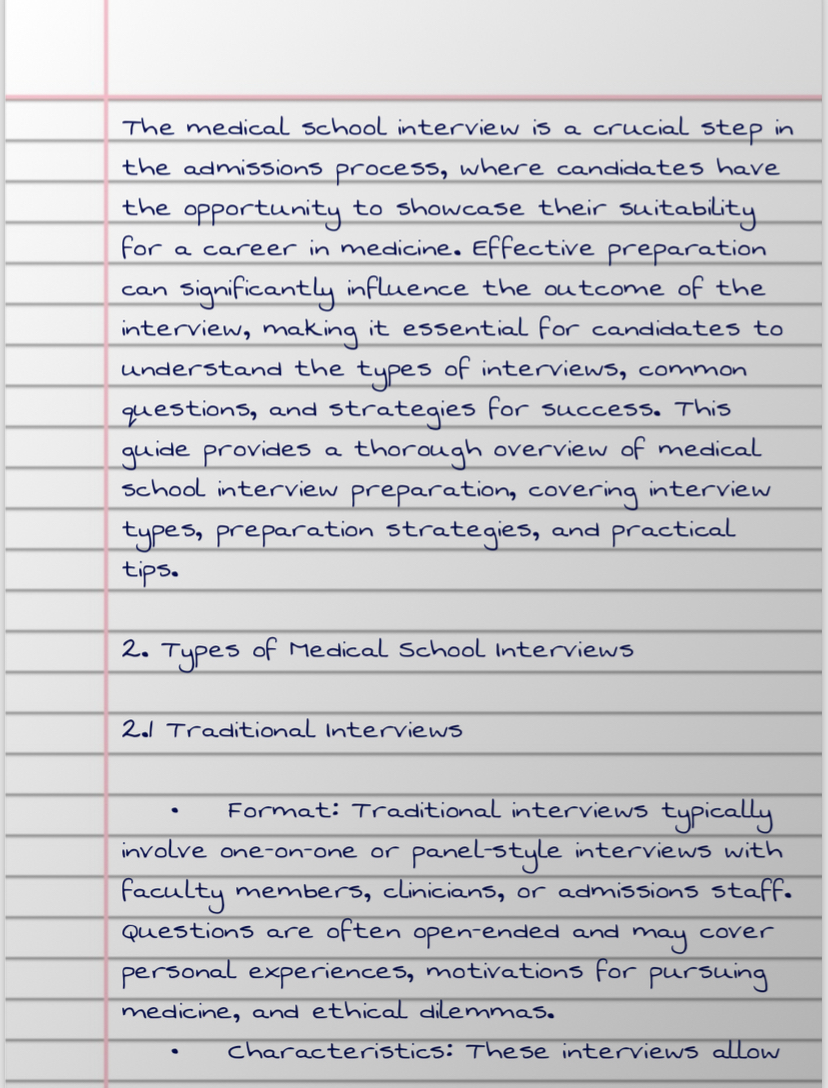 The medical school interview is a crucial step in
the admissions process, where candidates have
the opportunity to showcase their suitability
for a career in medicine. Effective preparation
can significantly influence the outcome of the
interview, making it essential for candidates to
understand the types of interviews, common
questions, and strategies for success. This
guide provides a thorough overview of medical
school interview preparation, covering interview
types, preparation strategies, and practical
tips.
2. Types of Medical School Interviews
2.1 Traditional Interviews
• Format: Traditional interviews typically
involve one-on-one or panel-style interviews with
faculty members, clinicians, or admissions staff.
Questions are often open-ended and may cover
personal experiences, motivations for pursuing
medicine, and ethical dilemmas.
• Characteristics: These interviews allow